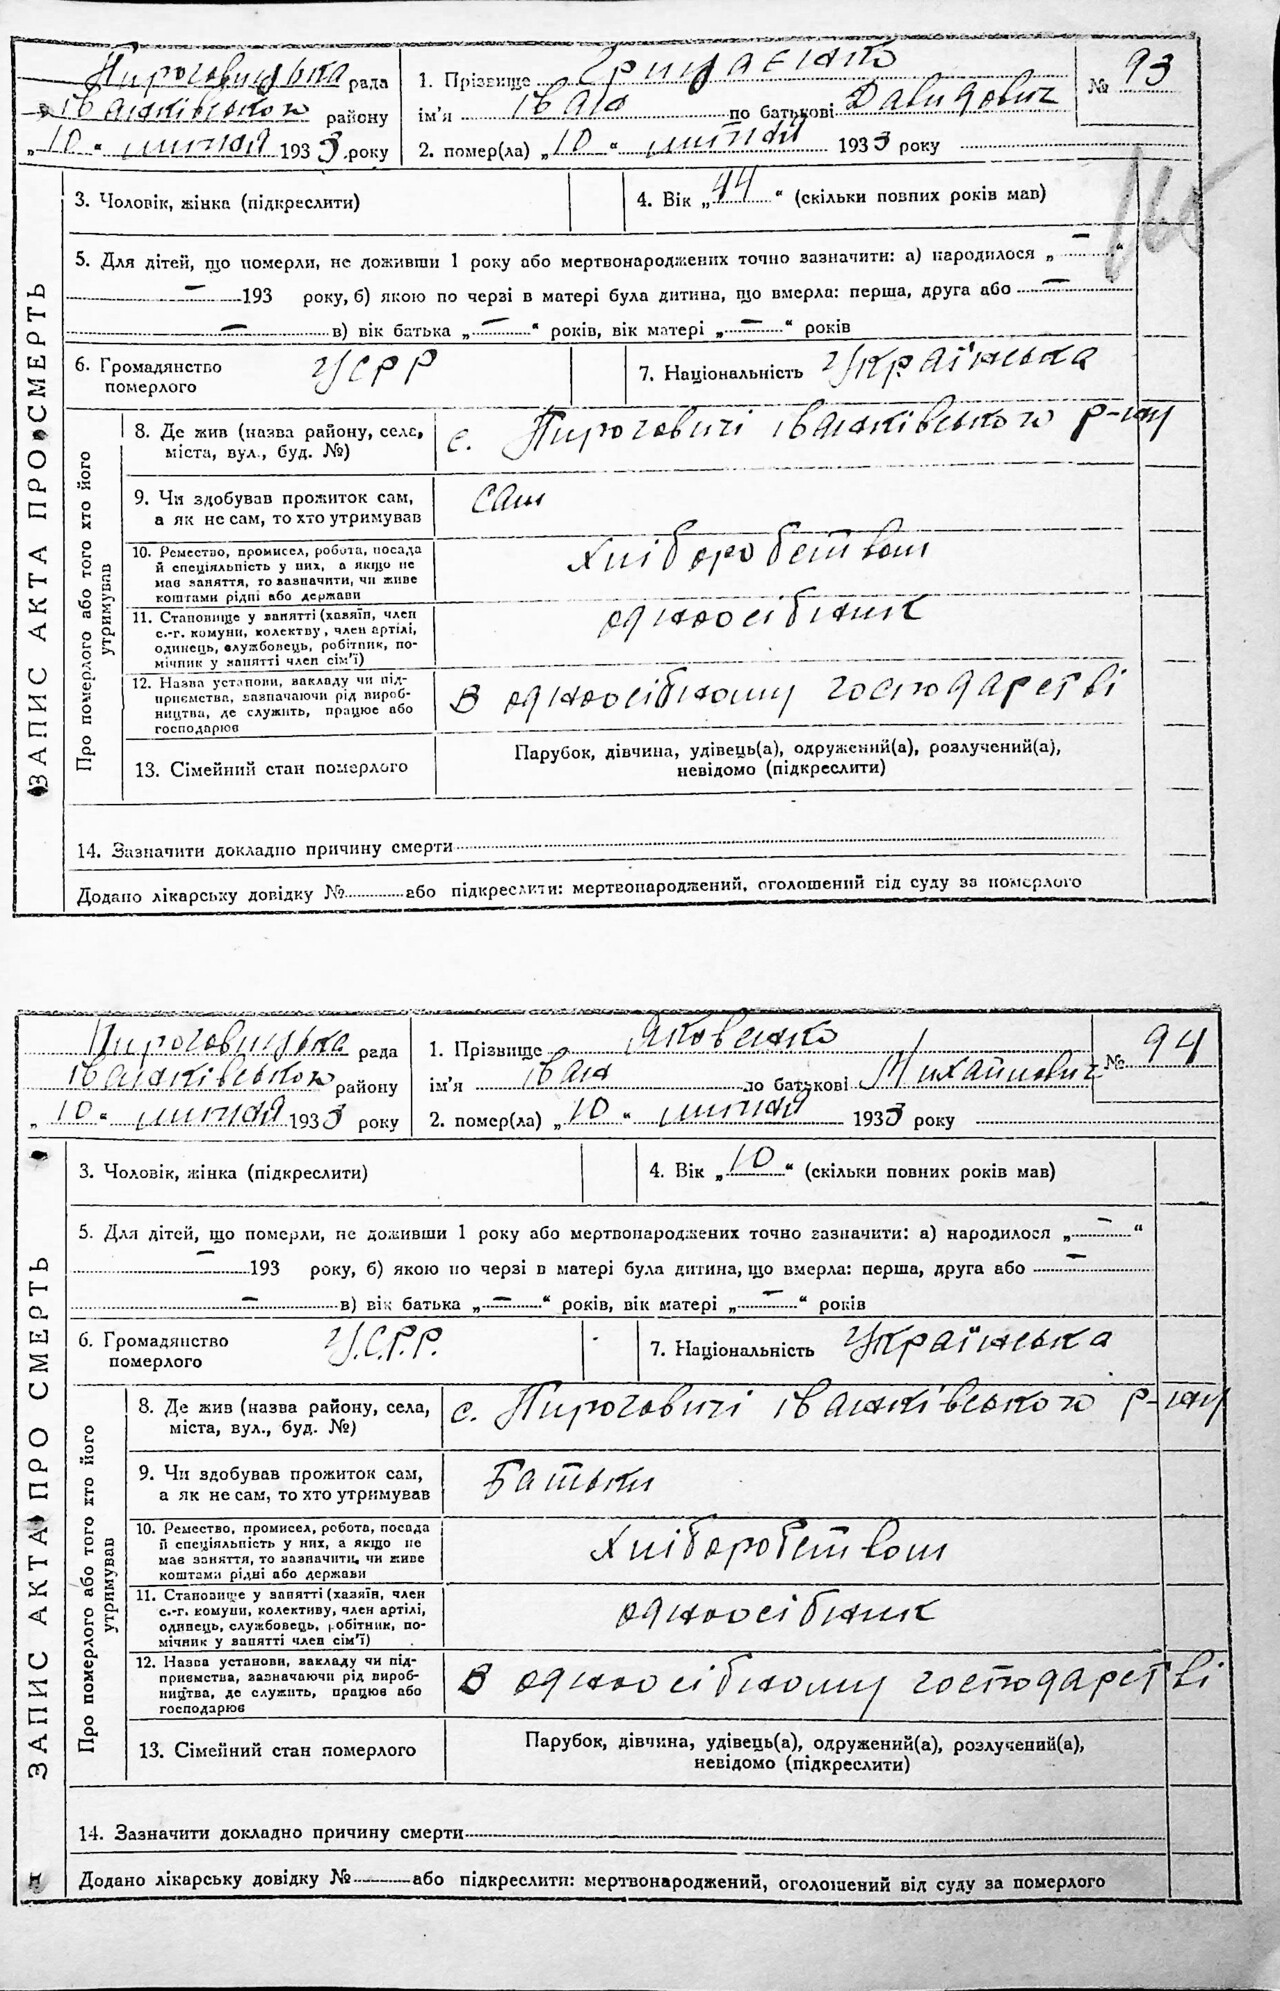 Пироговицька рада
Іванківського району
„10“ липня 1933 року
1. Прізвище Грицаєнко
ім’я Іван по батькові Давидович
2. помер(ла) „10“ липня 1933 року
№ 93
ЗАПИС АКТА ПРО СМЕРТЬ
3. Чоловік, жінка (підкреслити)
4. Вік „44“ (скільки повних років мав)
5. Для дітей, що померли, не доживши 1 року або мертвонароджених точно зазначити: а) народилося „—“
— 193 року, б) якою по черзі в матері була дитина, що вмерла: перша, друга або —
— в) вік батька „—“ років, вік матері „—“ років
6. Громадянство
померлого
УСРР
7. Національність Українська
Про померлого або того хто його
утримував
8. Де жив (назва району, села,
міста, вул., буд. №)
с. Пироговичі Іванківського р-ну
9. Чи здобував прожиток сам,
а як не сам, то хто утримував
сам
10. Ремество, промисел, робота, посада
й спеціяльність у них, а якщо не
має заняття, то зазначити, чи живе
коштами рідні або держави
Хліборобством
11. Становище у занятті (хазяїн, член
с.-г. комуни, колектву, член артілі,
одинець, службовець, робітник, по-
мічник у занятті член сім’ї)
одноосібник
12. Назва установи, закладу чи під-
приємства, зазначаючи рід вироб-
ництва, де служить, працює або
господарює
в одноосібному господарстві
13. Сімейний стан померлого
Парубок, дівчина, удівець(а), одружений(а), розлучений(а),
невідомо (підкреслити)
14. Зазначити докладно причину смерти
Додано лікарську довідку № або підкреслити: мертвонароджений, оголошений від суду за померлого
Пироговицька рада
Іванківського району
„10“ липня 1933 року
1. Прізвище Яковенко
ім’я Іван по батькові Михайлович
2. помер(ла) „10“ липня 1933 року
№ 94
ЗАПИС АКТА ПРО СМЕРТЬ
3. Чоловік, жінка (підкреслити)
4. Вік „10“ (скільки повних років мав)
5. Для дітей, що померли, не доживши 1 року або мертвонароджених точно зазначити: а) народилося „—“
— 193 року, б) якою по черзі в матері була дитина, що вмерла: перша, друга або —
— в) вік батька „—“ років, вік матері „—“ років
6. Громадянство
померлого
У.С.Р.Р.
7. Національність Українська
Про померлого або того хто його
утримував
8. Де жив (назва району, села,
міста, вул., буд. №)
с. Пироговичі Іванківського р-ну
9. Чи здобував прожиток сам,
а як не сам, то хто утримував
Батьки
10. Ремество, промисел, робота, посада
й спеціяльність у них, а якщо не
має заняття, то зазначити, чи живе
коштами рідні або держави
Хліборобством
11. Становище у занятті (хазяїн, член
с.-г. комуни, колективу, член артілі,
одинець, службовець, робітник, по-
мічник у занятті член сім’ї)
одноосібник
12. Назва установи, закладу чи під-
приємства, зазначаючи рід вироб-
ництва, де служить, працює або
господарює
в одноосібному господарстві
13. Сімейний стан померлого
Парубок, дівчина, удівець(а), одружений(а), розлучений(а),
невідомо (підкреслити)
14. Зазначити докладно причину смерти
Додано лікарську довідку № або підкреслити: мертвонароджений, оголошений від суду за померлого